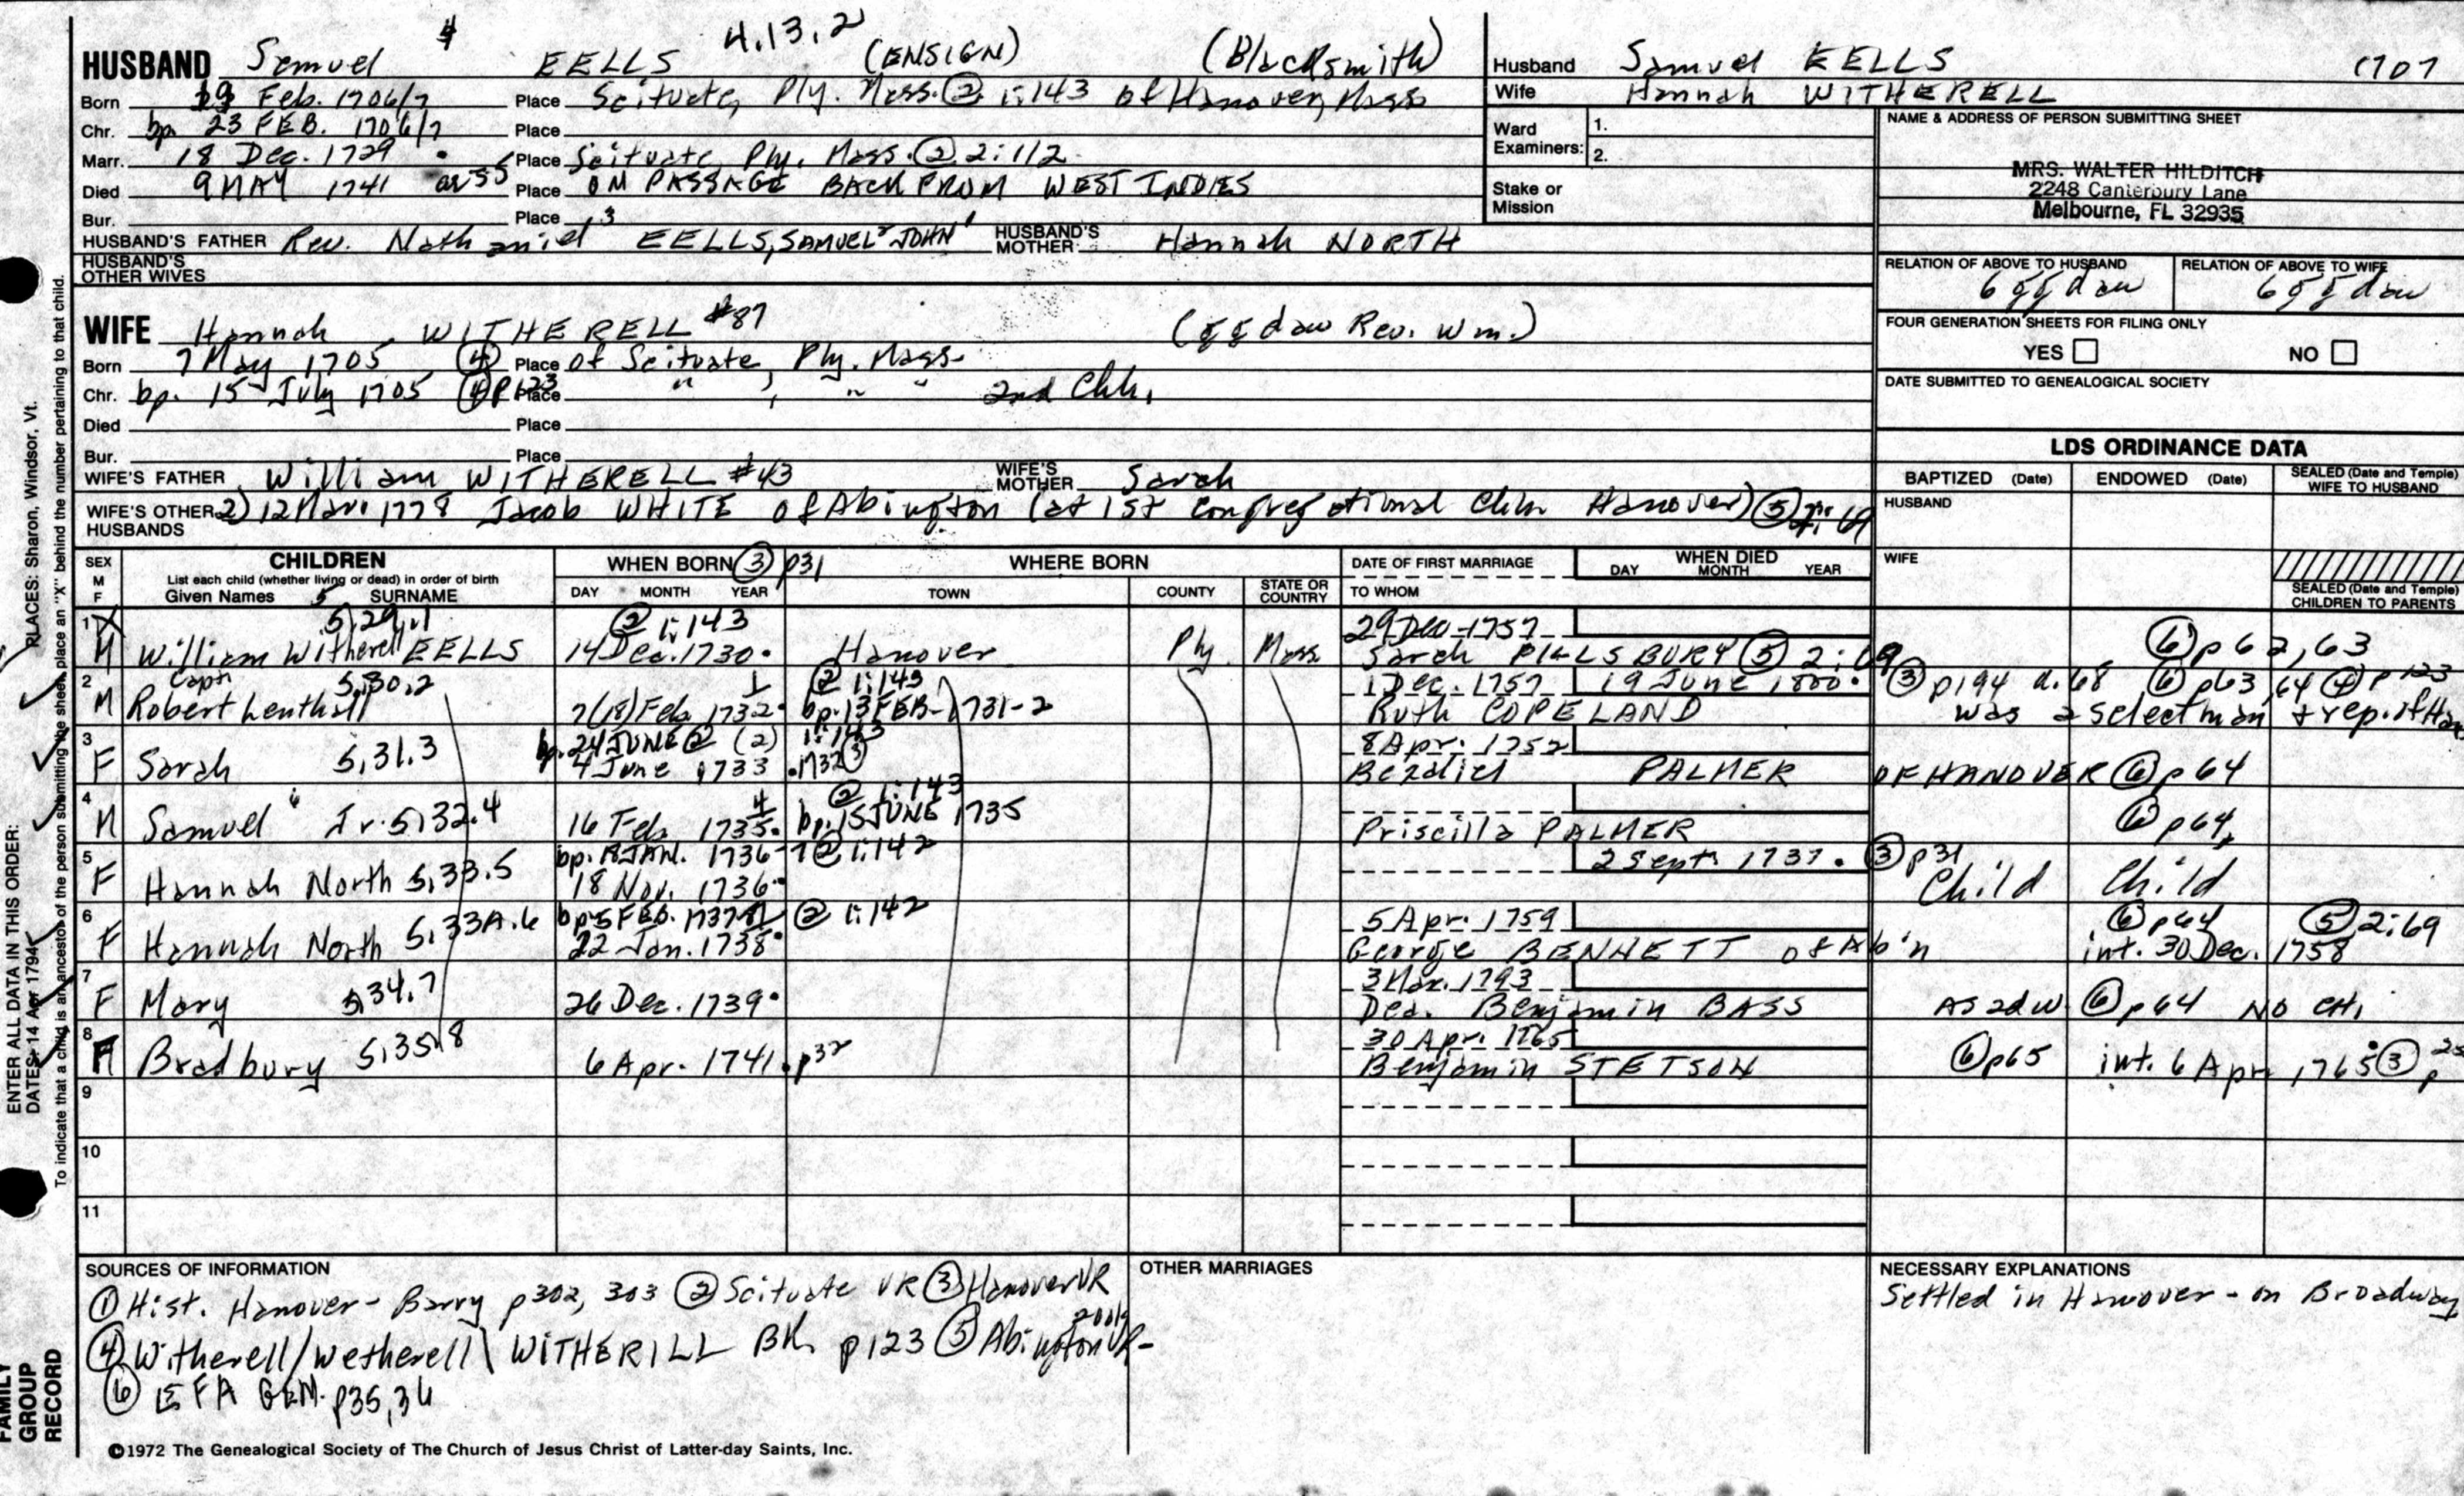 4 4.13.2
HUSBAND Samuel EELLS (ENSIGN) (Blacksmith)
Born 19 Feb. 1706/7 Place Scituate, Ply. Mass. ② 1:143 of Hanover, Mass
Chr. bp. 23 FEB. 1706/7 Place
Marr. 18 Dec. 1729 Place Scituate, Ply. Mass. ② 2:112
Died 9 MAY 1741 Place ON PASSAGE BACK FROM WEST INDIES
Bur. Place
HUSBAND'S FATHER Rev. Nathaniel 3 EELLS, SAMUEL 2 JOHN 1 HUSBAND'S MOTHER Hannah NORTH
HUSBAND'S OTHER WIVES
Husband Samuel EELLS 1707
Wife Hannah WITHERELL
Ward Examiners: 1.
2.
Stake or Mission
NAME & ADDRESS OF PERSON SUBMITTING SHEET
MRS. WALTER HILDITCH
2248 Canterbury Lane
Melbourne, FL 32935
RELATION OF ABOVE TO HUSBAND RELATION OF ABOVE TO WIFE
6 gg daw 6 gg daw
FOUR GENERATION SHEETS FOR FILING ONLY
YES NO
DATE SUBMITTED TO GENEALOGICAL SOCIETY
WIFE Hannah WITHERELL #87 (gg daw Rev. Wm.)
Born 7 May 1705 ④ Place of Scituate, Ply. Mass.
Chr. bp. 15 July 1705 ④ p123 Place " , " " 2nd Chh.
Died Place
Bur. Place
WIFE'S FATHER William WITHERELL #43 WIFE'S MOTHER Sarah
WIFE'S OTHER HUSBANDS 2) 12 Mar. 1778 Jacob WHITE of Abington (at 1st Congregational Chh Hanover) ⑤
LDS ORDINANCE DATA
BAPTIZED (Date) ENDOWED (Date) SEALED (Date and Temple) WIFE TO HUSBAND
HUSBAND
WIFE
SEALED (Date and Temple) CHILDREN TO PARENTS
SEX M F CHILDREN
List each child (whether living or dead) in order of birth
Given Names 5 SURNAME
WHEN BORN ③ p31
DAY MONTH YEAR
WHERE BORN
TOWN COUNTY STATE OR COUNTRY
DATE OF FIRST MARRIAGE
TO WHOM
WHEN DIED
DAY MONTH YEAR
1 X 5,29.1 ② 1:143 29 Dec 1757
M William Witherell EELLS 14 Dec. 1730 Hanover Ply Mass Sarah PILLSBURY ⑤ 2:69 ⑥ p62,63
2 Capt 5,30.2 ② 1:143 1 Dec. 1757 19 June 1800 ③ p194 a.68 ⑥ p63,64 ④ p123
M Robert Lenthall 7(18) Feb 1732 bp. 13 FEB 1731-2 Ruth COPELAND was a selectman & rep. of Han
3 bp. 24 JUNE ② (2) 1:143 8 Apr. 1752
F Sarah 5,31.3 4 June 1733 1732 ③ Bezaliel PALMER OF HANOVER ⑥ p64
4 ② 1:143
M Samuel 6 Jr. 5,132.4 16 Feb. 1735 4 bp. 15 JUNE 1735 Priscilla PALMER ⑥ p64
5 bp. 18 JAN. 1736-7 ② 1:142 2 Sept. 1737 ③ p31
F Hannah North 5,33.5 18 Nov. 1736 Child Child
6 bp 5 FEB. 1737-8 ② 1:142 5 Apr. 1759 ⑥ p64 ⑤ 2:69
F Hannah North 5,33A.6 22 Jan. 1738 George BENNETT of Ab'n int. 30 Dec. 1758
7 3 Mar. 1793
F Mary 5,34.7 26 Dec. 1739 Dea. Benjamin BASS AS 2d w. ⑥ p64 NO CH.
8 30 Apr. 1765
F Bradbury 5,35.8 6 Apr. 1741 p32 Benjamin STETSON ⑥ p65 int. 6 Apr 1765 ③ p
9
10
11
SOURCES OF INFORMATION
① Hist. Hanover - Barry p302, 303 ② Scituate VR ③ Hanover VR
④ Witherell/Wetherell\WITHERILL Bk p123 ⑤ Abington VR
⑥ EFA GEN. p35,36
OTHER MARRIAGES
NECESSARY EXPLANATIONS
Settled in Hanover - on Broadway
©1972 The Genealogical Society of The Church of Jesus Christ of Latter-day Saints, Inc.
ENTER ALL DATA IN THIS ORDER:
DATES: 14 Apr 1794 PLACES: Sharon, Windsor, Vt.
To indicate that a child is an ancestor of the person submitting the sheet, place an "X" behind the number pertaining to that child.
FAMILY GROUP RECORD